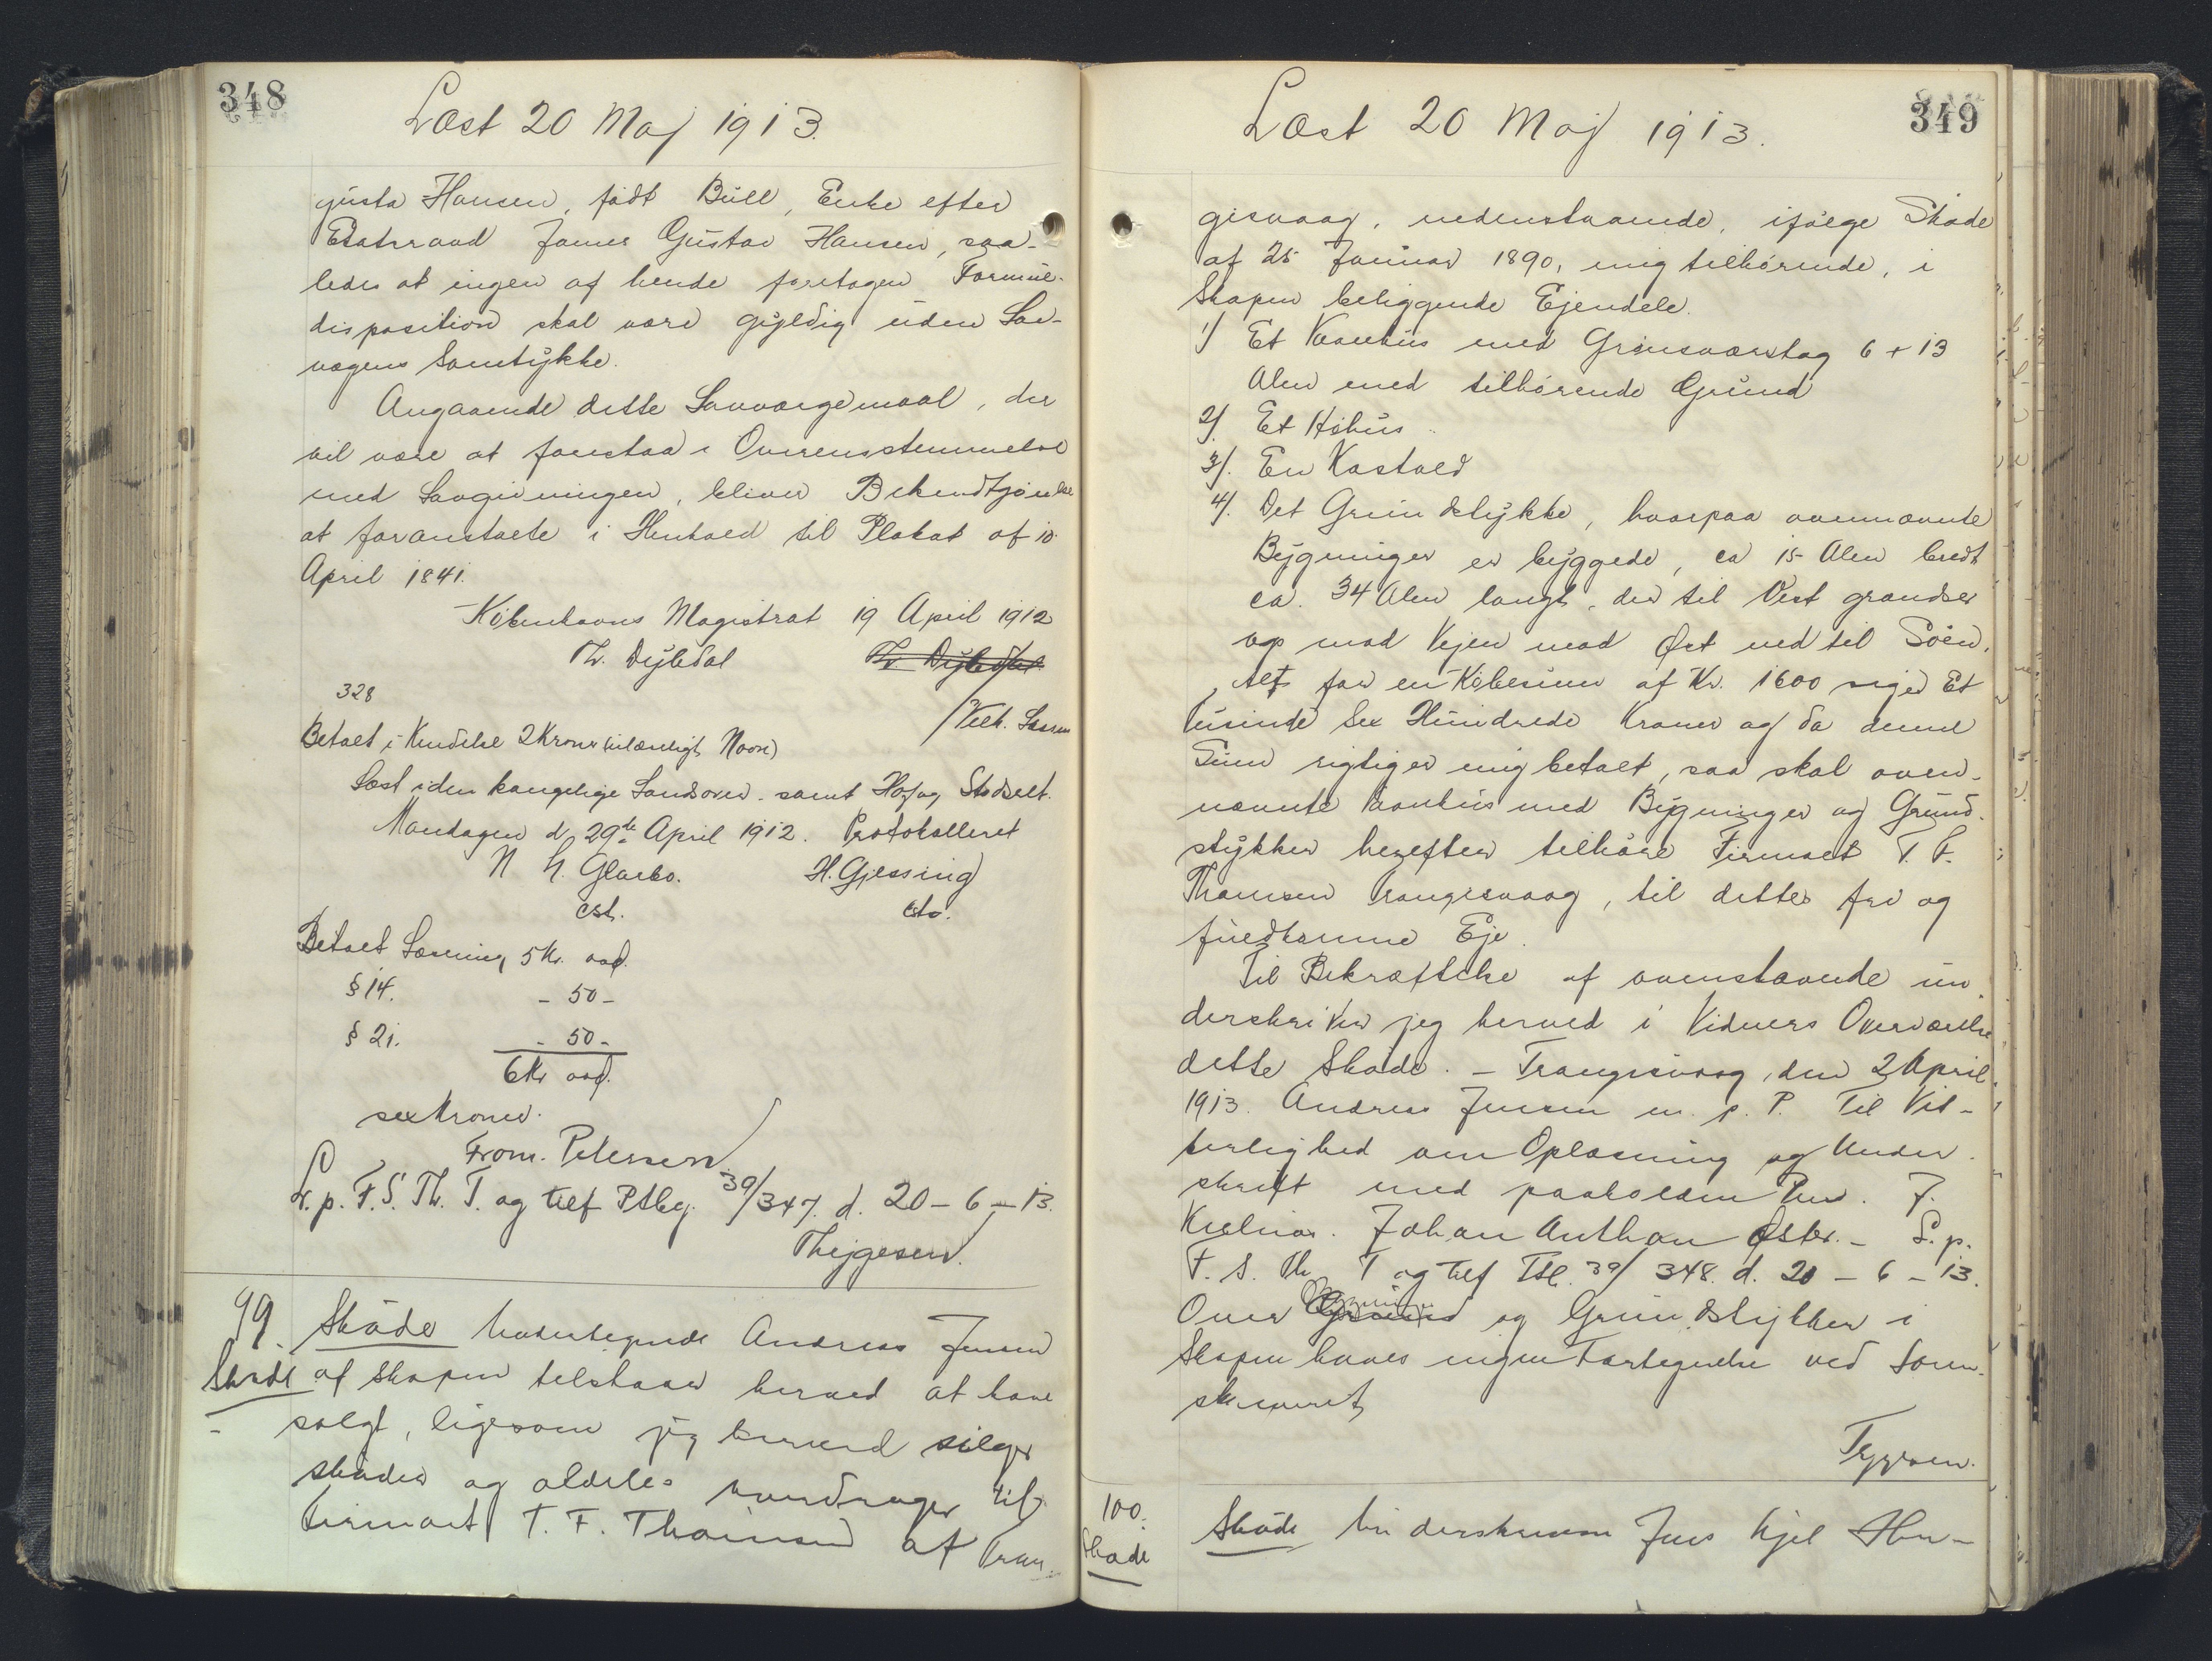 348
Læst 20 Maj 1913.
gusta Hansen, født Bull, Enke efter
Etatsraad James Gustav Hansen, saa-
ledes at ingen af hende foretagen Formue-
disposition skal være gyldig uden Lav-
værgens Samtykke.
Angaaende dette Lavværgemaal, der
vil være at forestaa i Overensstemmelse
med Lovgivningen, bliver Bekendtgørelse
at foranstalte i Henhold til Plakat af 10
April 1841.
Københavns Magistrat 19 April 1912
Th. Dybdal Th. Dybdal
328
/Vilh. Lassen
Betalt i Kendelse 2 Kroner
Læst i den kongelige Landsover- samt Hof og Stadsret
Mandagen d. 29de April 1912. Protokolleret
N. H. Glarbo. H. Gjessing
cst. cst.
Betalt Læsning 5 Kr. ood.
§ 14. - 50 -
§ 21. - 50 -
6 Kr ood.
sex Kroner.
From. Petersen
L. p. F. S. Th. T. og tilf Ptbg. 39/347. d. 20-6-13.
Thygesen.
99.
Skøde
Skøde Undertegnede Andreas Jensen
af Skopen tilstaar herved at have
solgt, ligesom jeg herved sælger
skøder og aldeles overdrager til
Firmaet T. F. Thomsen af Tran-
349
Læst 20 Maj 1913.
gisvaag, nedenstaaende, ifølge Skøde
af 25 Januar 1890, mig tilhørende, i
Skopen beliggende Ejendele.
1/ Et Vaanhus med Grønsværstag 6 + 13
Alen med tilhørende Grund
2/. Et Høhus.
3/. En Kostald
4/. Det Grundstykke, hvorpaa ovennævnte
Bygninger er byggede, ca 15 Alen bredt
ca. 34 Alen langt, der til Vest grændser
op mod Vejen mod Øst ned til Søen,
Alt for en Købesum af Kr. 1600 siger Et
tusinde Sex Hundrede Kroner og da denne
Sum rigtiger mig betalt, saa skal oven-
nævnte Vaanhus med Bygninger og Grund-
stykker herefter tilhøre Firmaet T. F.
Thomsen Trangisvaag, til dettes fri og
fuldkomne Eje.
Til Bekræftelse af ovenstaaende un-
derskriver jeg herved i Vidners Overværelse
dette Skøde. - Trangisvaag, den 2 April
1913. Andreas Jensen m. p. P. Til Vit-
terlighed om Oplæsning og Under-
skrift med paaholden Pen. J.
Kjelnæs. Johan Anthon Øster. - L. p.
F. S. Th. T og tilf Tsl. 39/348. d. 20-6-13.
Over Bygninger og Grundstykker i
Skopen haves ingen Fortegnelse ved Soren-
skriveriet
Thygesen.
100.
Skøde
Skøde Underskrevne Jens Kjel Hen-